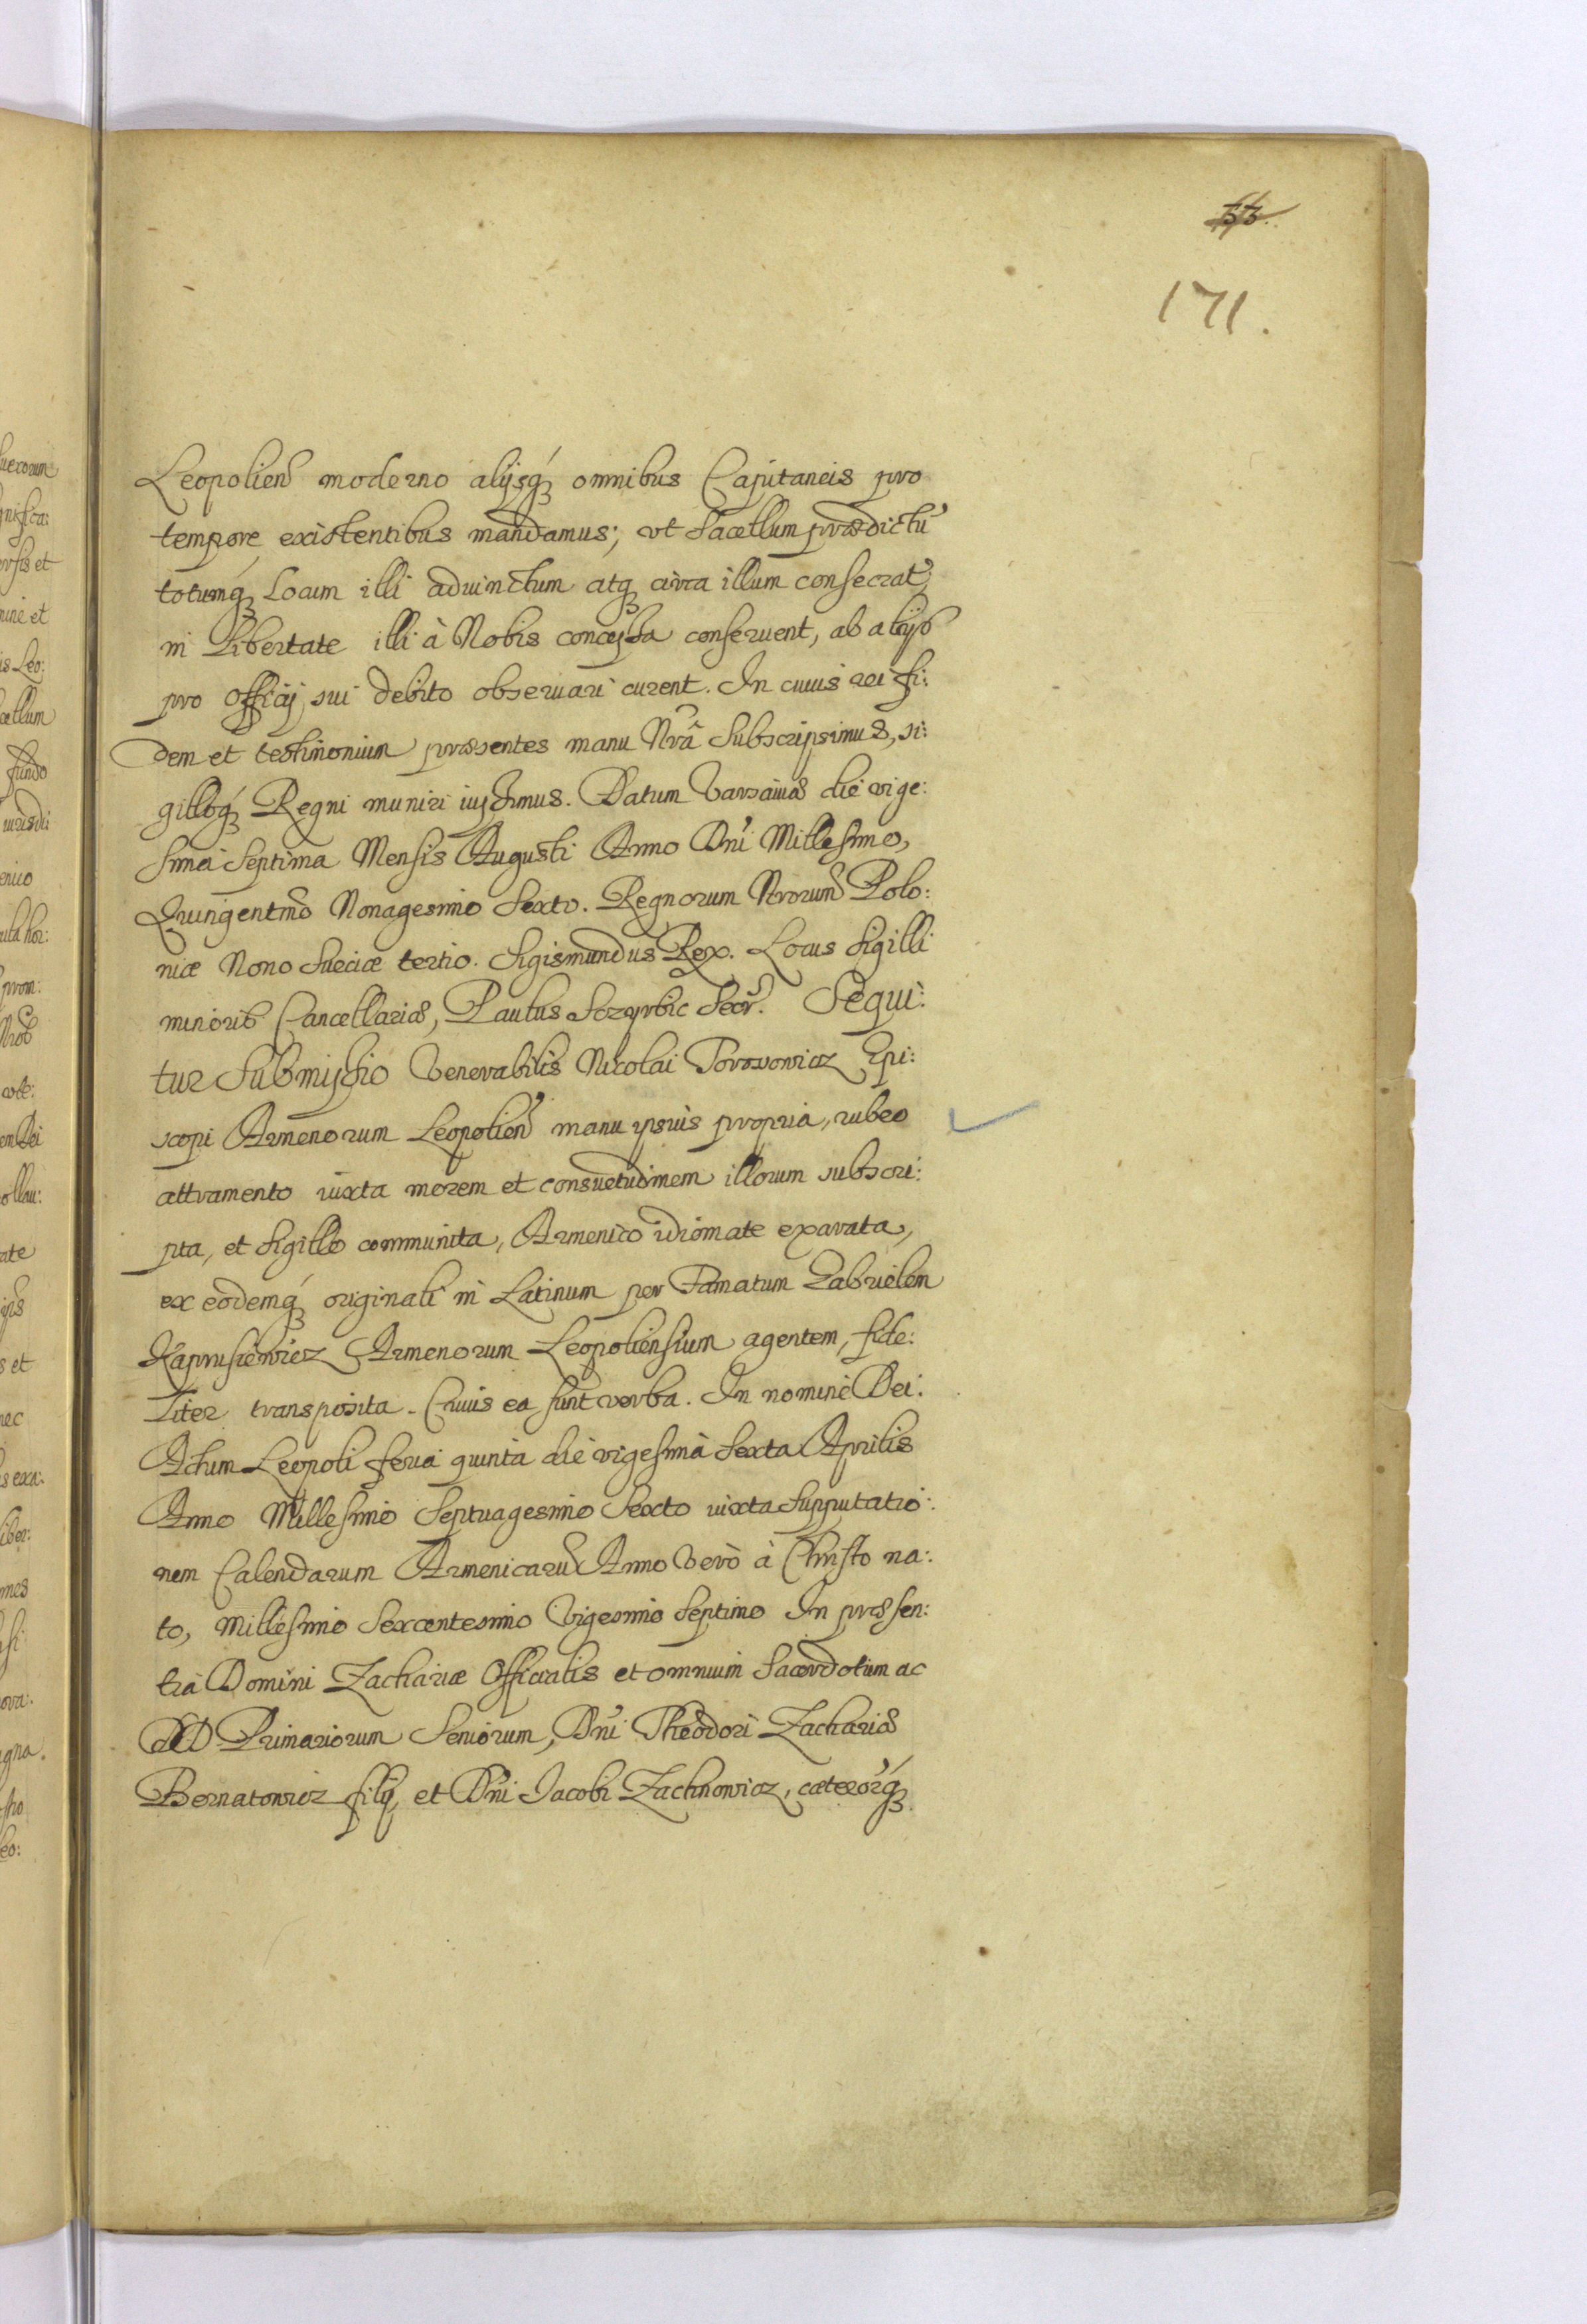 53.
171.
Leopolien̄ moderno alijsq́ꝫ omnibus Capitaneis pro
tempore existentibus mandamus; vt Sacellum prædictū
totumq́ꝫ Locum illi adiunctum atqꝫ circa illum consecratū
in Libertate illi à Nobis concessa conseruent, ab alijs
pro Officij sui debito obseruari curent. In cuius rei fi:
dem et testimonium præsentes manu Nrâ subscripsimus, si:
gilloq́ꝫ Regni muniri iussimus. Datum Varsauiæ die vige:
sima Septima Mensis Augusti Anno Dn̄i Millesimo,
Quingentmō Nonagesimo Sexto. Regnorum Nrorum Polo:
niæ Nono Sueciæ tertio. Sigismundus Rex. Locus Sigilli
minoris Cancellariæ, Paulus Sczyrbic Secr̄. Sequi:
tur Submissio Venerabilis Nicolai Torosowicz Epi:
scopi Armenorum Leopolien̄ manu ipsius propria, rubeo
attramento iuxta morem et consuetudinem illorum subscri:
pta, et Sigillo communita, Armenico idiomate exarata,
ex eodemq́ꝫ originali in Latinum per Famatum Gabrielem
Kaprusiewicz Armenorum Leopoliensium agentem, fide:
liter transposita. Cuius ea sunt verba. In nomine Dei.
Actum Leopoli feria quinta die vigesimà Sexta Aprilis
Anno Millesimo Septuagesimo Sexto iuxta Supputatio:
nem Calendarum Armenicarū Anno Verò à Christo na:
to, Millesimo Sexcentesimo Vigesimo Septimo In præsen:
tia Domini Zachariæ Officialis et omnium Sacerdotum ac
DD Primariorum Seniorum, Dn̄i Theodori Zachariæ
Bernatowicz filij, et Dn̄i Jacobi Zachnowicz, cæterorq́ꝫ